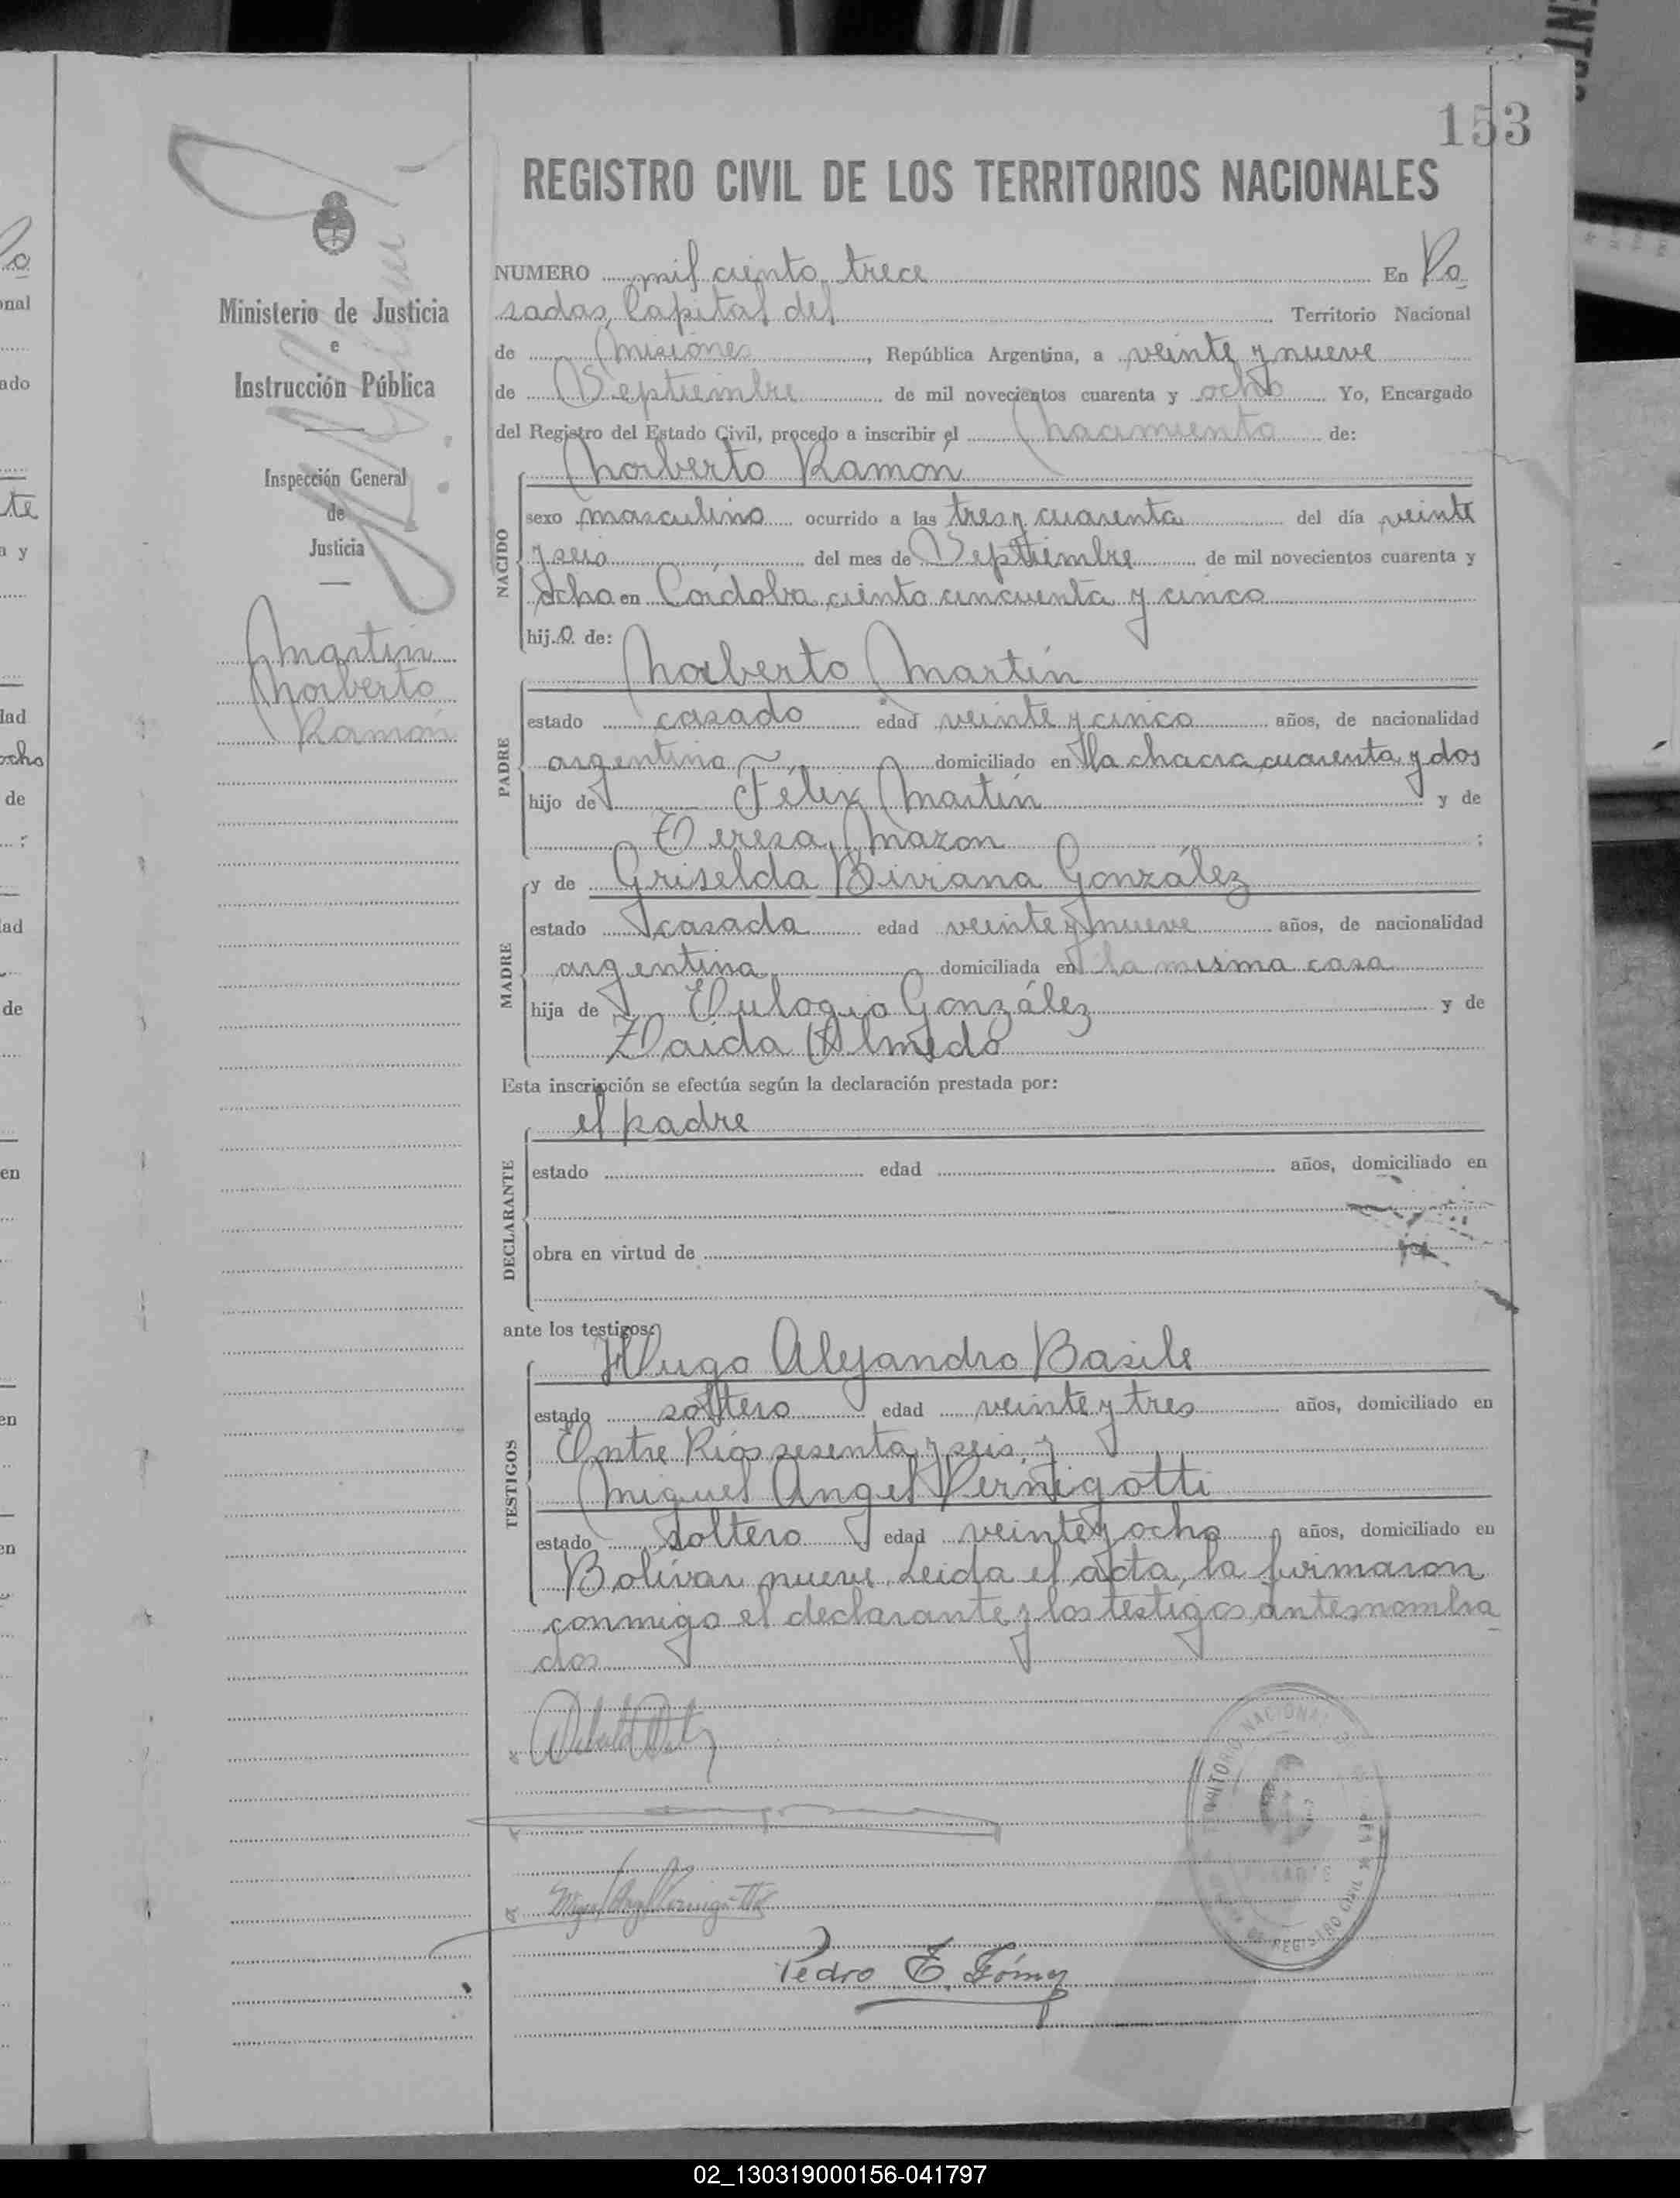 153
REGISTRO CIVIL DE LOS TERRITORIOS NACIONALES
Ministerio de Justicia
e
Instrucción Pública
Inspección General
de
Justicia
Martin
Norberto
Ramón
NUMERO mil ciento trece En Po
sadas, Capital del Territorio Nacional
de Misiones, República Argentina, a veinte y nueve
de Septiembre de mil novecientos cuarenta y ocho Yo, Encargado
del Registro del Estado Civil, procedo a inscribir el Nacimiento de:
Norberto Ramón
NACIDO
sexo masculino ocurrido a las tres y cuarenta del día veinte
y seis del mes de Septiembre de mil novecientos cuarenta y
ocho en Córdoba ciento cincuenta y cinco
hijo de:
Norberto Martín
PADRE
estado casado edad veinte y cinco años, de nacionalidad
argentina domiciliado en la chacra cuarenta y dos
hijo de Félix Martín y de
Teresa Mazon ;
y de Griselda Biviana González
MADRE
estado casada edad veinte y nueve años, de nacionalidad
argentina domiciliada en la misma casa
hija de Eulogio González y de
Zaida Olmedo
Esta inscripción se efectúa según la declaración prestada por:
el padre
DECLARANTE
estado edad años, domiciliado en
obra en virtud de
ante los testigos:
Hugo Alejandro Basile
TESTIGOS
estado soltero edad veinte y tres años, domiciliado en
Entre Ríos sesenta y seis y
Miguel Angel Pernigotti
estado soltero edad veinte y ocho años, domiciliado en
Bolívar nueve. Leida el acta, la firmaron
conmigo el declarante y los testigos antes nombra
dos
Pedro E. Gómez
REGISTRO CIVIL
02_130319000156-041797